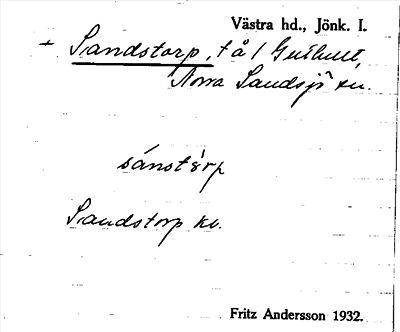 Västra hd., Jönk. l.
+ Sandstorp, t å /
Norra Sandsjö sn.
sánstòrp
Sandstorp kv.
Fritz Andersson 1932.